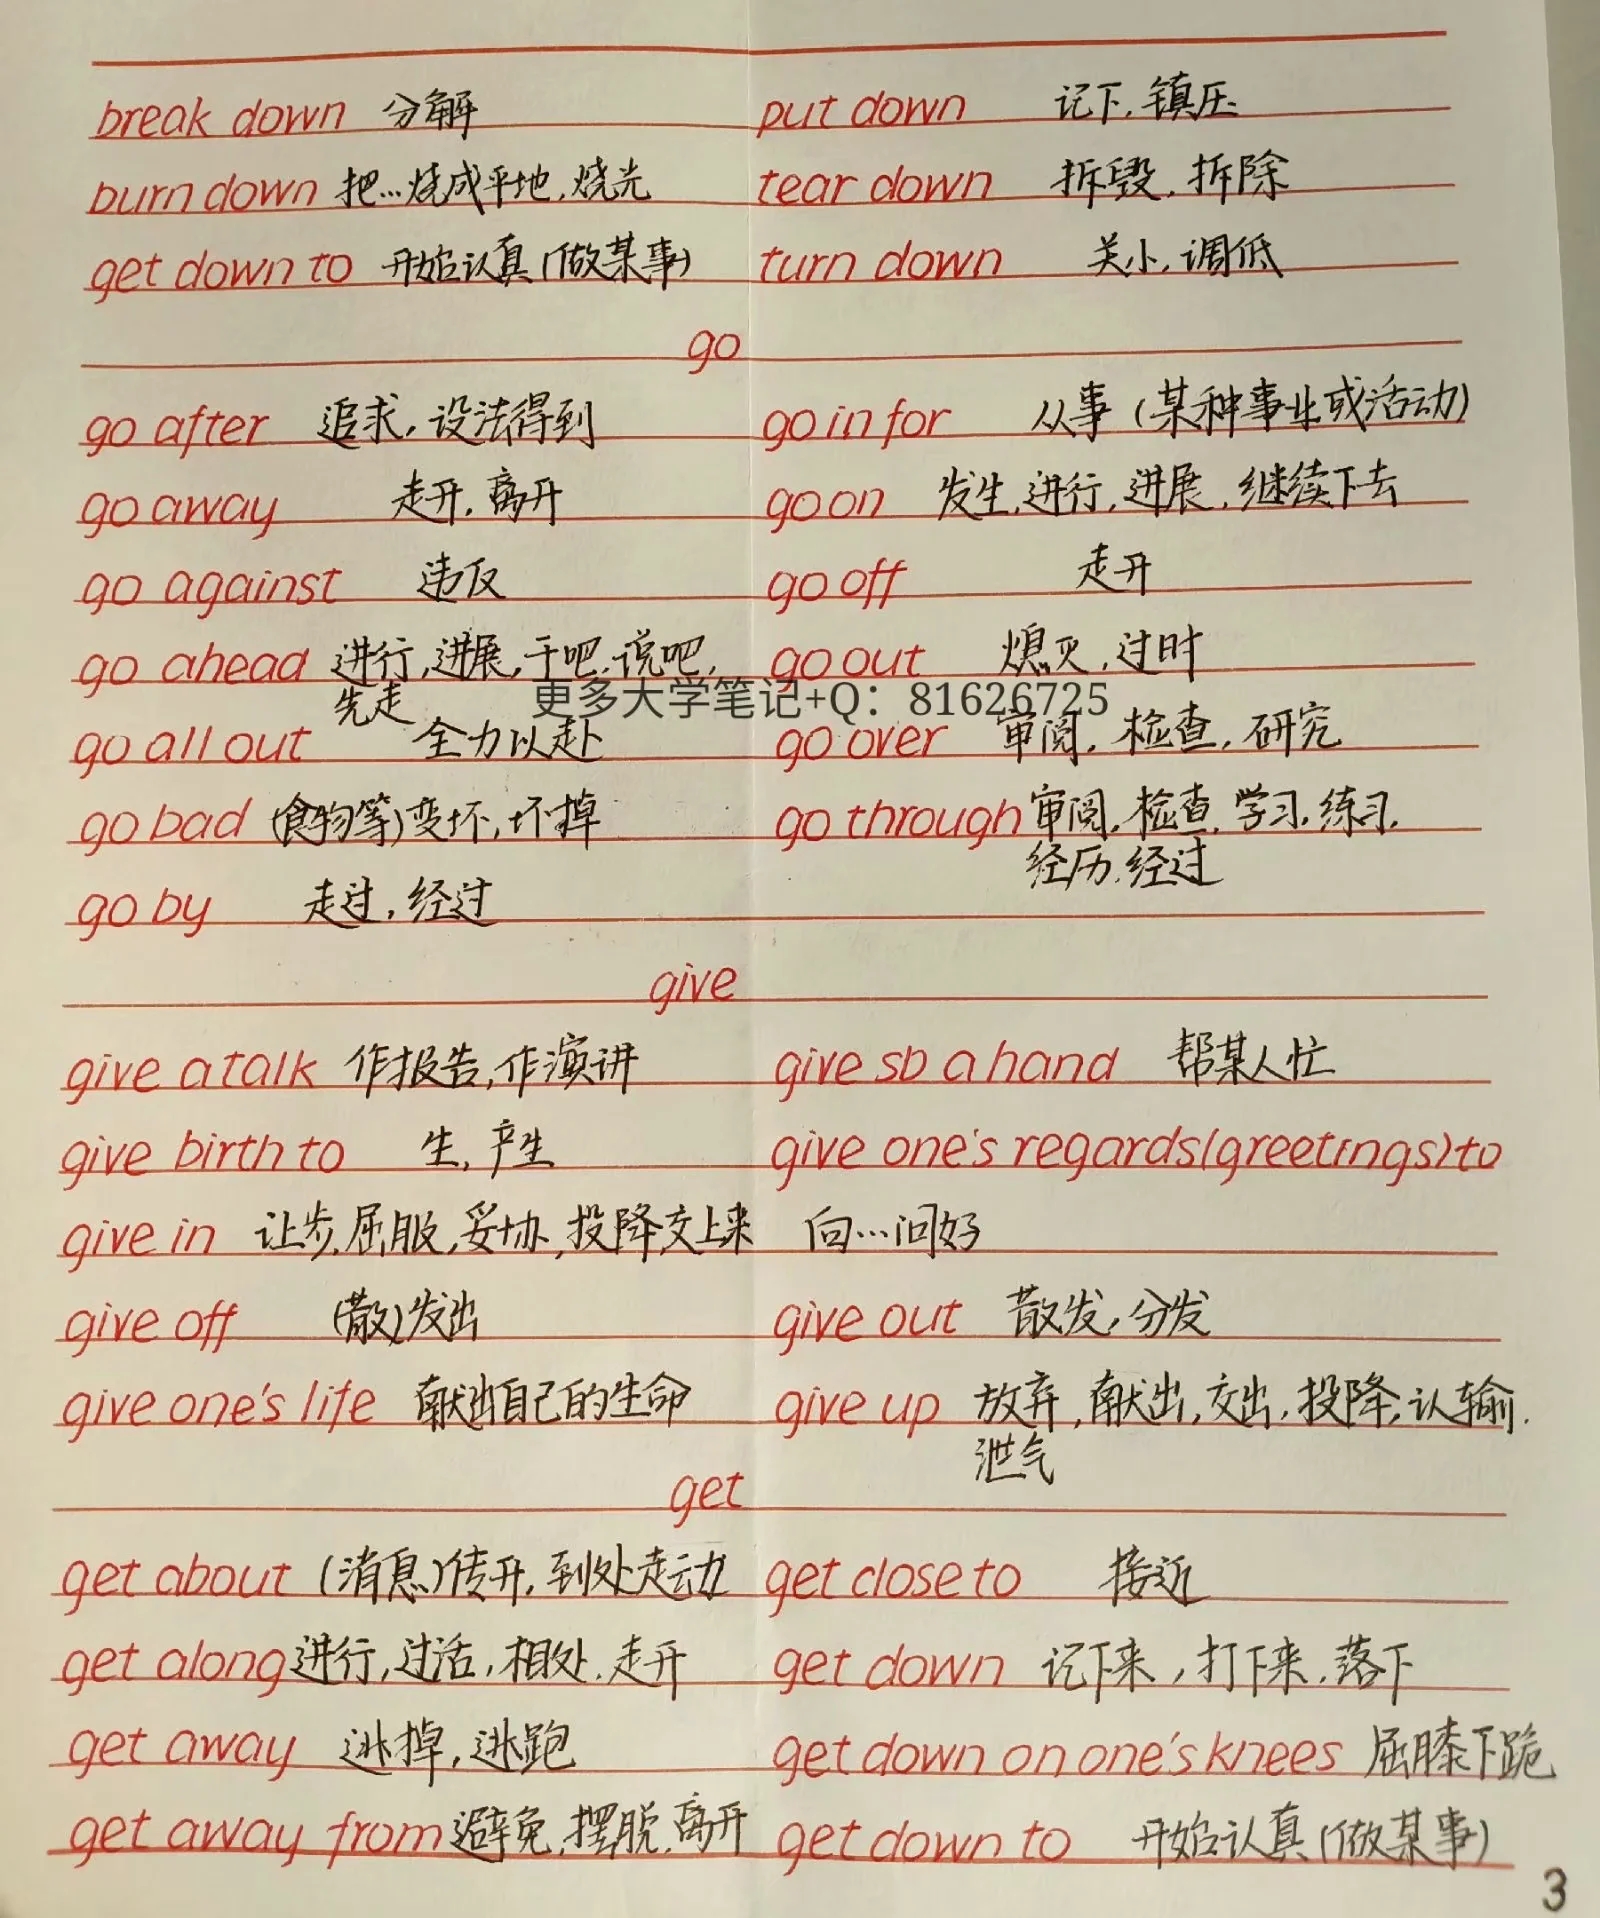 break down 分解 put down 记下,镇压
burn down 把…烧成平地,烧光 tear down 拆毁,拆除
get down to 开始认真(做某事) turn down 关小,调低
go
go after 追求,设法得到 go in for 从事(某种事业或活动)
go away 走开,离开 go on 发生,进行,进展,继续下去
go against 违反 go off 走开
go ahead 进行,进展,干吧,说吧, go out 熄灭,过时
先走
更多大学笔记+Q：81626725
go all out 全力以赴 go over 审阅,检查,研究
go bad (食物等)变坏,坏掉 go through 审阅,检查,学习,练习,
经历,经过
go by 走过,经过
give
give a talk 作报告,作演讲 give sb a hand 帮某人忙
give birth to 生,产生 give one's regards(greetings) to
give in 让步,屈服,妥协,投降,交上来 向…问好
give off (散)发出 give out 散发,分发
give one's life 献出自己的生命 give up 放弃,献出,交出,投降,认输,
泄气
get
get about (消息)传开,到处走动 get close to 接近
get along 进行,过活,相处,走开 get down 记下来,打下来,落下
get away 逃掉,逃跑 get down on one's knees 屈膝下跪
get away from 避免,摆脱,离开 get down to 开始认真(做某事)
3